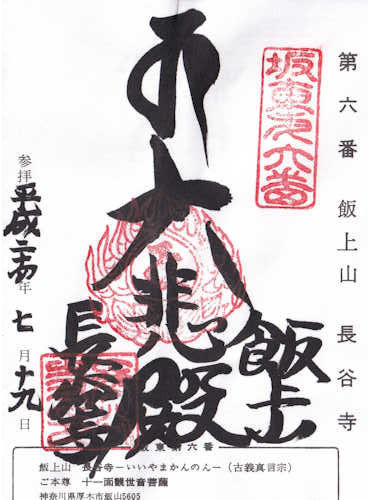 第六番 飯上山 長谷寺
坂東第六番
大悲殿
飯上山
長谷寺
参拝 平成二十四年 七月十九日
坂東第六番
飯上山 長谷寺－いいやまかんのん－(古義真言宗)
ご本尊 十一面観世音菩薩
神奈川県厚木市飯山5605